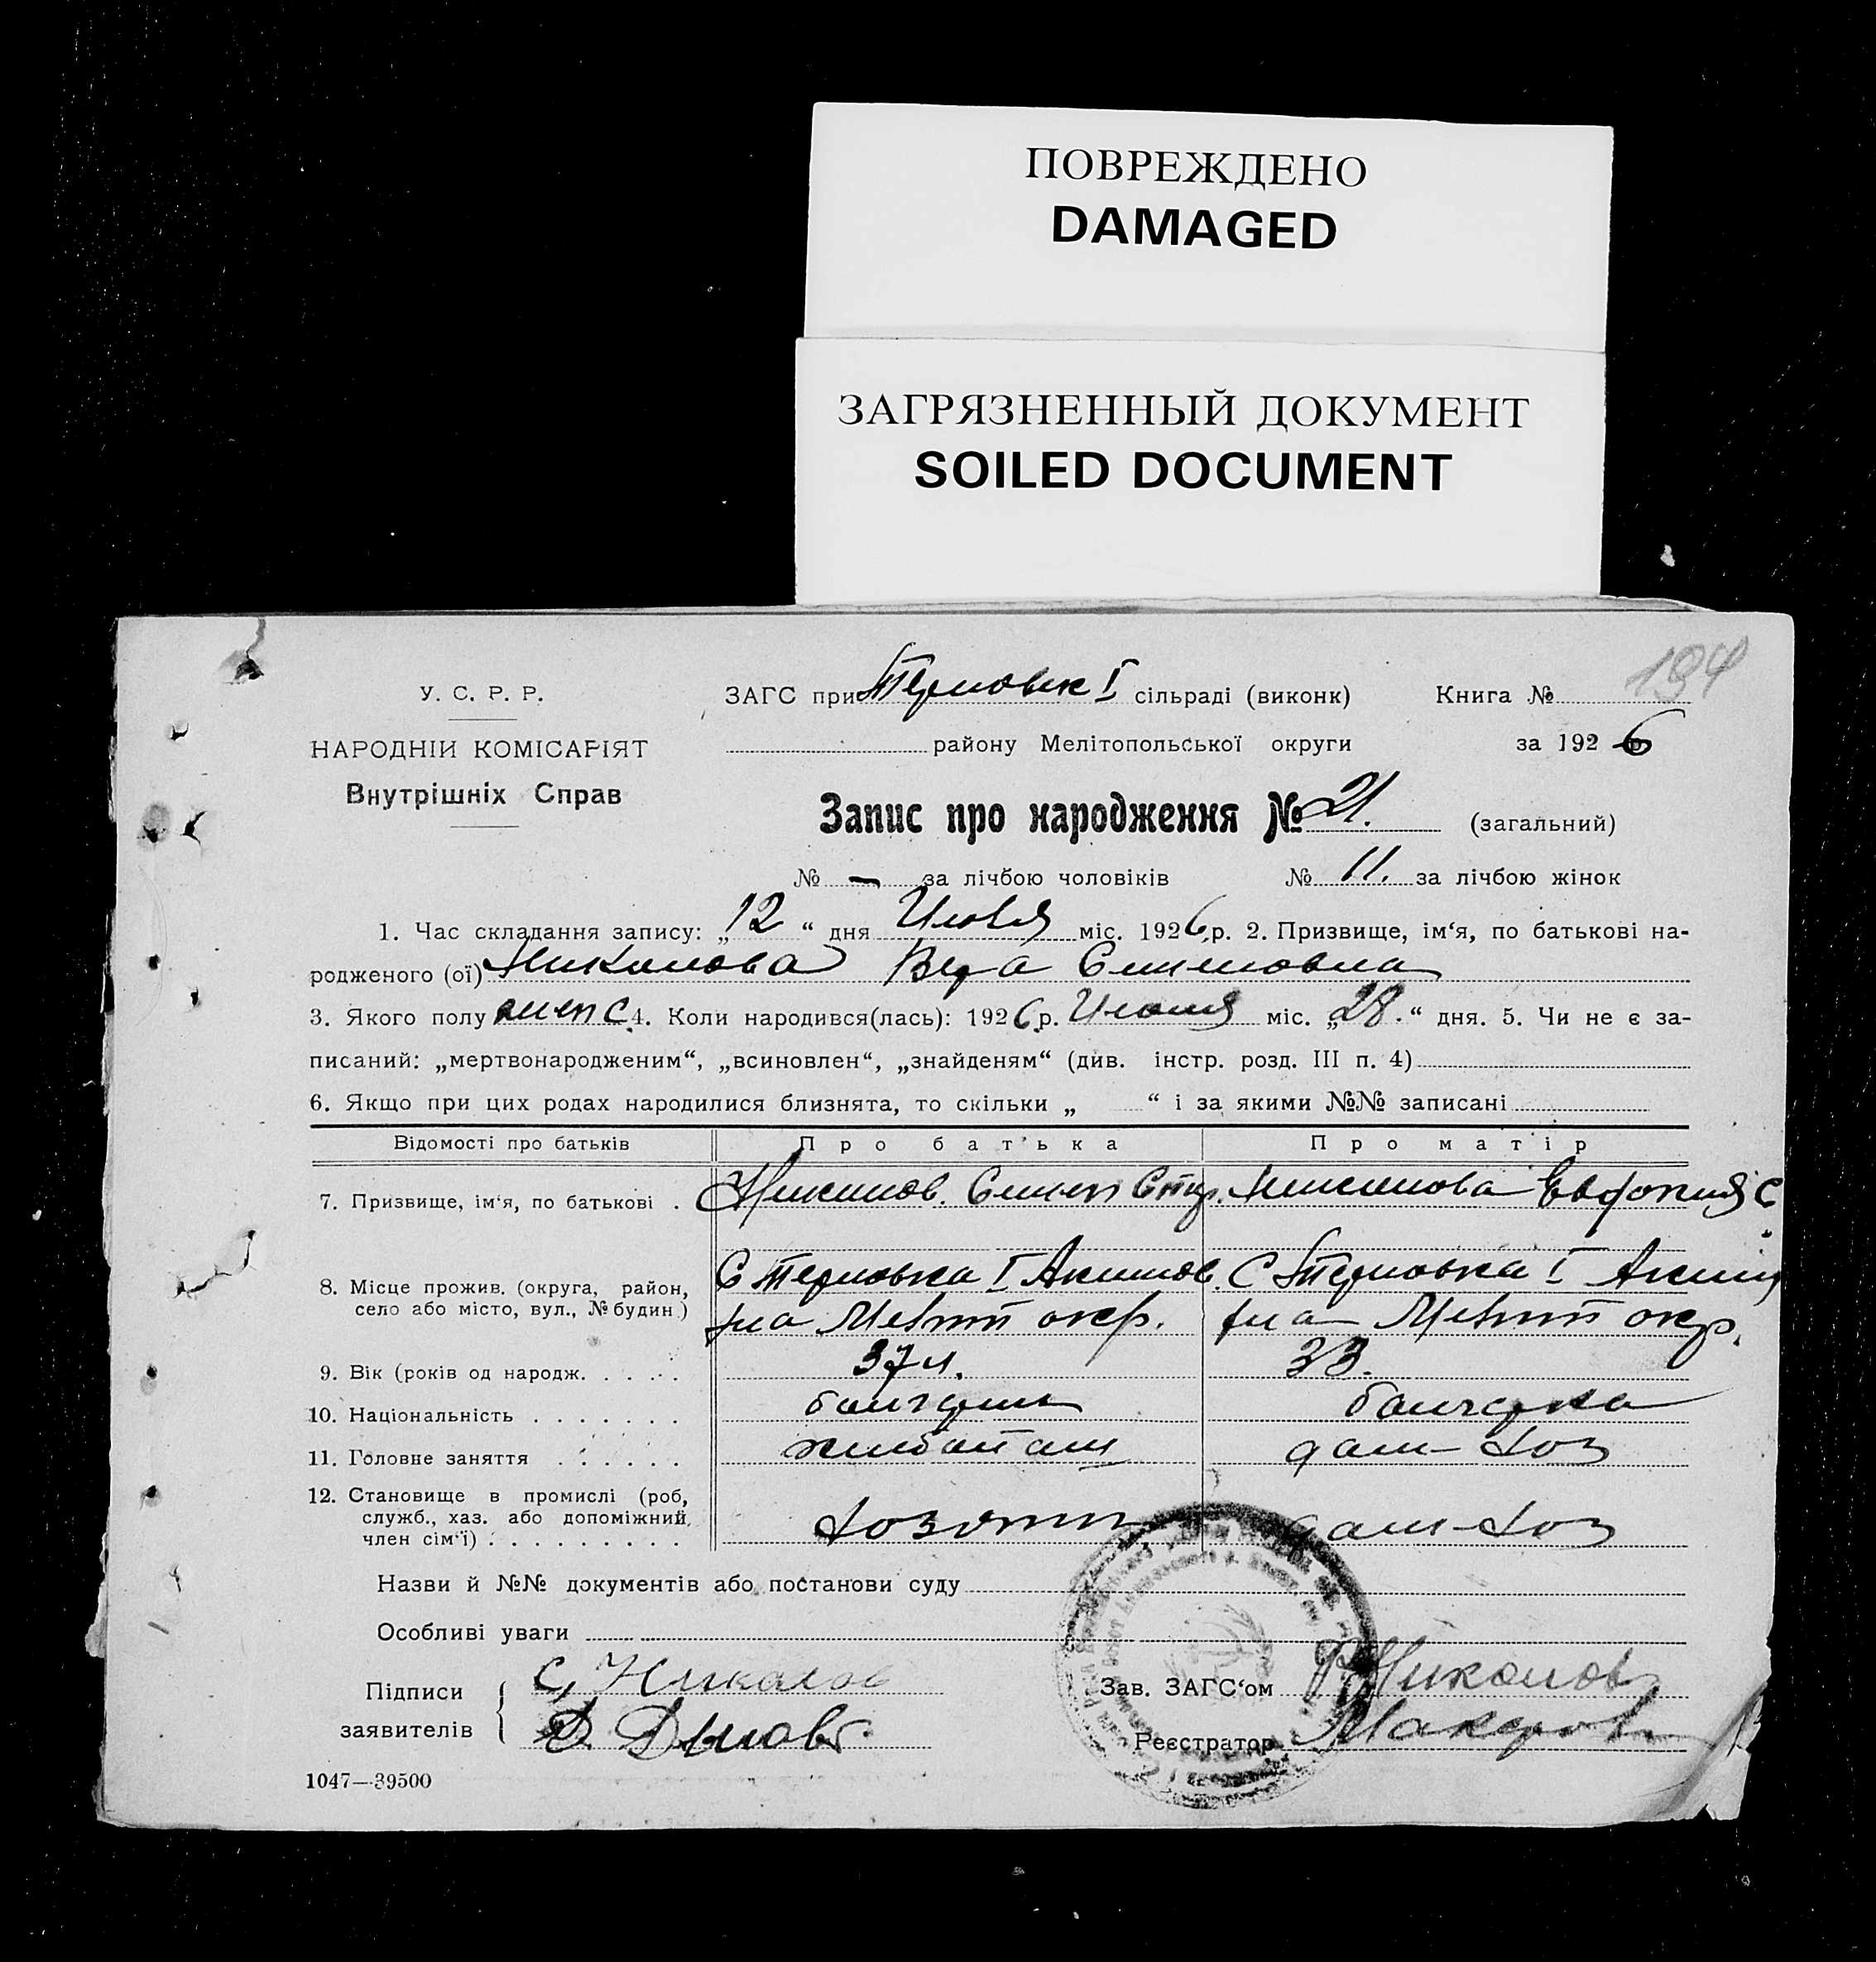 ПОВРЕЖДЕНО
DAMAGED
ЗАГРЯЗНЕННЫЙ ДОКУМЕНТ
SOILED DOCUMENT
194
У. С. Р. Р. ЗАГС при Терновке I сільраді (виконк) Книга №
НАРОДНІЙ КОМІСАРІЯТ району Мелітопольської округи за 1926
Внутрішніх Справ
Запис про народження № 21. (загальний)
№ — за лічбою чоловіків № 11. за лічбою жінок
1. Час складання запису: „12“ дня Июля міс. 1926 р. 2. Призвище, ім‘я, по батькові на-
родженого (ої) Николова Вера Семеновна
3. Якого полу женс. 4. Коли народився(лась): 1926 р. міс. „28.“ дня. 5. Чи не є за-
писаний: „мертвонародженим“, „всиновлен“, „знайденям“ (див. інстр. розд. III п. 4)
6. Якщо при цих родах народилися близнята, то скільки „ “ і за якими №№ записані
Відомості про батьків Про батька Про матір
7. Призвище, ім‘я, по батькові . Николов. Семен Николова Евдокия С
8. Місце прожив. (округа, район, С Терновка I Акимов. С Терновка I Аким
село або місто, вул., № будин.) р-на Мелит окр. р-на Мелит окр.
9. Вік (років од народж. . . . . . 37 л. 33.
10. Національність . . . . . . . болгарин болгарка
11. Головне заняття . . . . . . хлебопаш дом-хоз
12. Становище в промислі (роб,
служб., хаз. або допоміжний, хозяин дом-хоз
член сім‘ї) . . . . . . . . .
Назви й №№ документів або постанови суду
Особливі уваги
Підписи С, Николов Зав. ЗАГС‘ом Николов
заявителів Д. Реєстратор
1047—39500